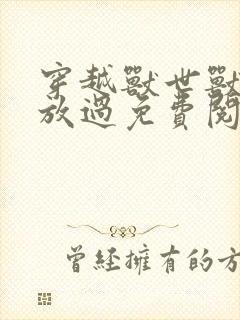 穿越獸世獸
放過免費閱
曾經擁有的方